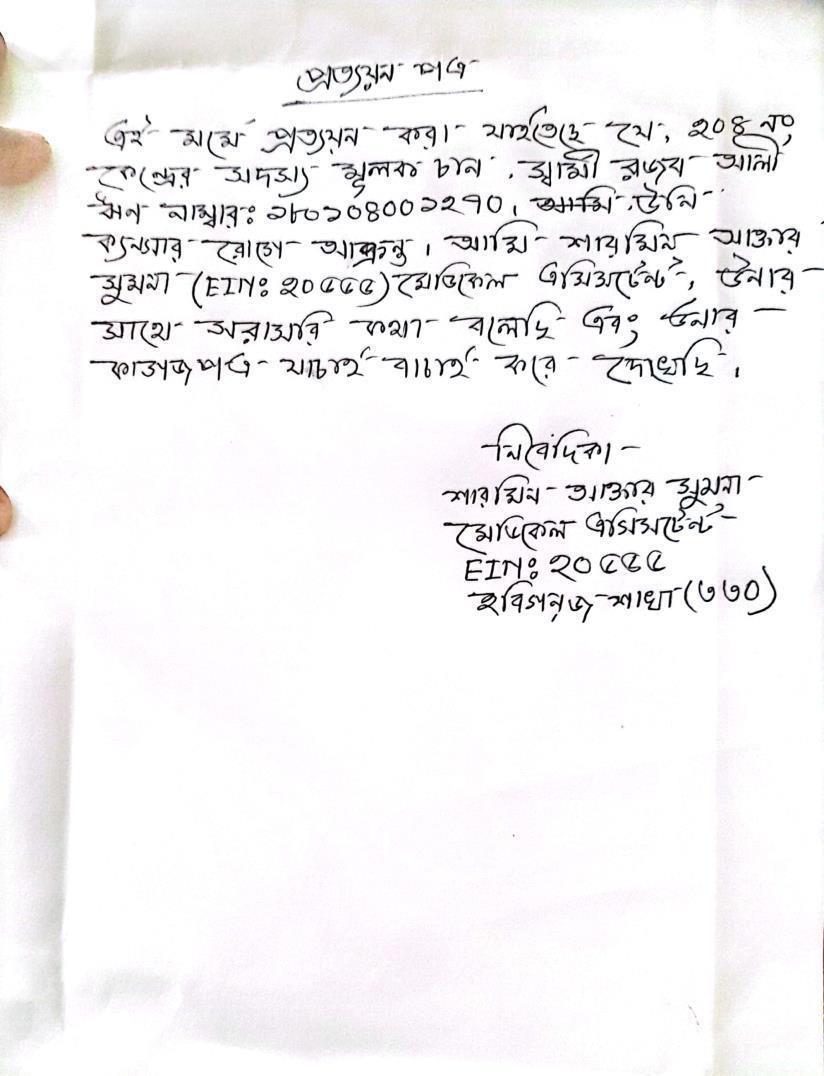 প্রত্যয়ন পত্র
এই মর্মে প্রত্যয়ন করা যাইতেছে যে, ২০৪ নং
কেন্দ্রের সদস্য মুলক চান, স্বামী রজব আলী
ঋন নাম্বারঃ ১৮০১০৪০০১২৭০, আমি, উনি
ক্যনসার রোগে আক্রন্ত। আমি শারমিন আক্তার
সুমনা (EIN: ২০৫৫৫) মেডিকেল এসিসটেন্ট, উনার
সাথে সরাসরি কথা বলেছি এবং উনার
কাগজপত্র যাচাই বাচাই করে দেখেছি।
নিবেদিকা
শারমিন আক্তার সুমনা
মেডিকেল এসিসটেন্ট
EIN: ২০৫৫৫
হবিগন্জ শাখা (৩৩০)